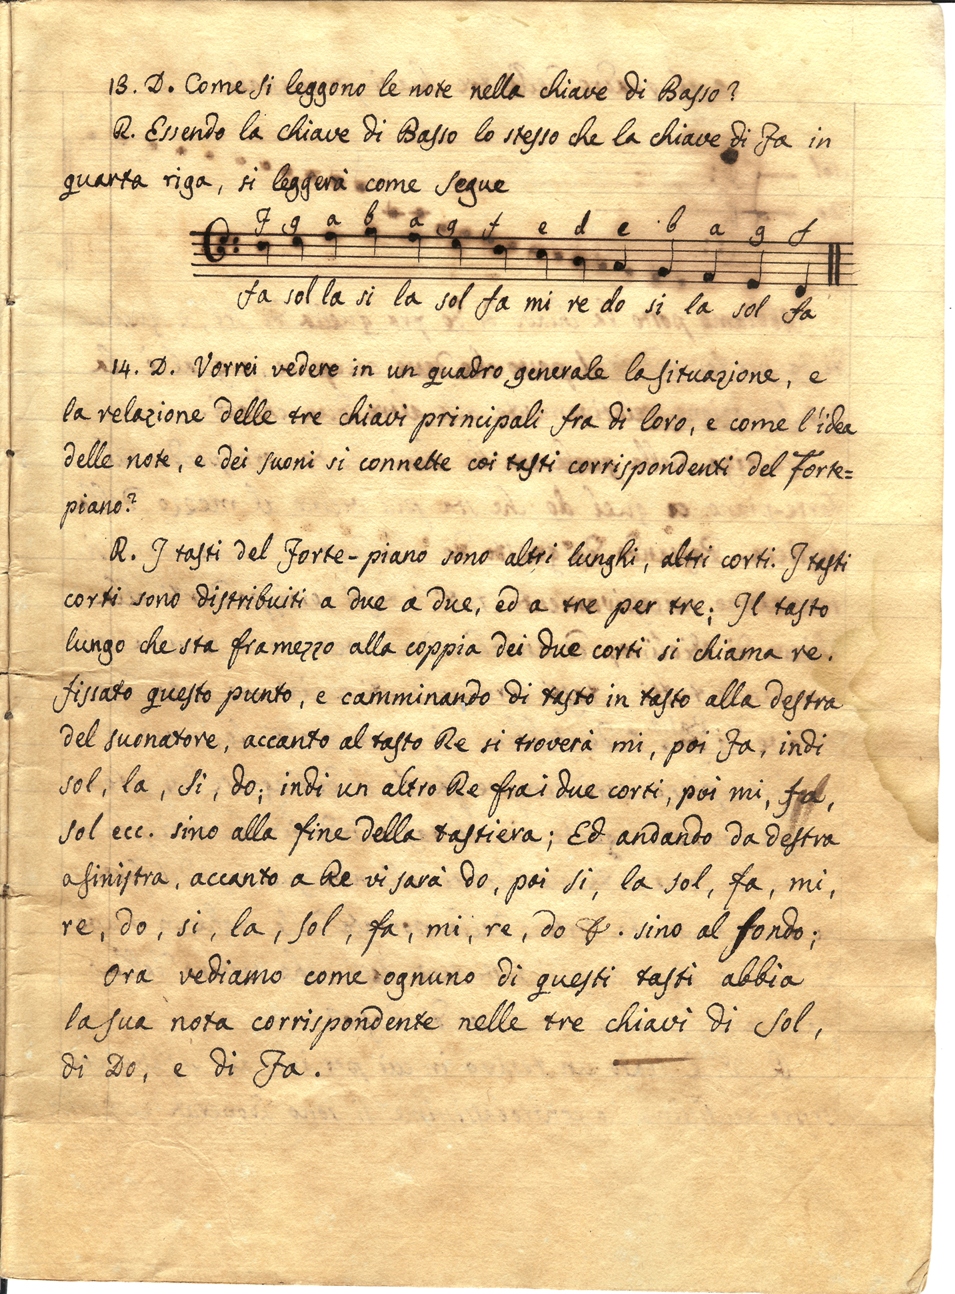 13. D. Come si leggono le note nella chiave di Basso?
R. Essendo la chiave di Basso lo stesso che la chiave di Fa in
quarta riga, si leggerà come segue
F g a b a g f e d e b a g f
fa sol la si la sol fa mi re do si la sol fa
14. D. Vorrei vedere in un quadro generale la situazione, e
la relazione delle tre chiavi principali fra di loro, e come l'idea
delle note, e dei suoni si connette coi tasti corrispondenti del Forte=
piano?
R. I tasti del Forte-piano sono altri lunghi, altri corti. I tasti
corti sono distribuiti a due a due, ed a tre per tre; Il tasto
lungo che sta framezzo alla coppia dei due corti si chiama re.
fissato questo punto, e camminando di tasto in tasto alla destra
del suonatore, accanto al tasto Re si troverà mi, poi Fa, indi
sol, la, Si, do; indi un altro Re fra i due corti, poi mi, fa,
sol ecc. sino alla fine della tastiera; Ed andando da destra
a sinistra, accanto a Re vi sarà do, poi si, la sol, fa, mi,
re, do, si, la, sol, fa, mi, re, do &. sino al fondo;
Ora vediamo come ognuno di questi tasti abbia
la sua nota corrispondente nelle tre chiavi di Sol,
di Do, e di Fa.